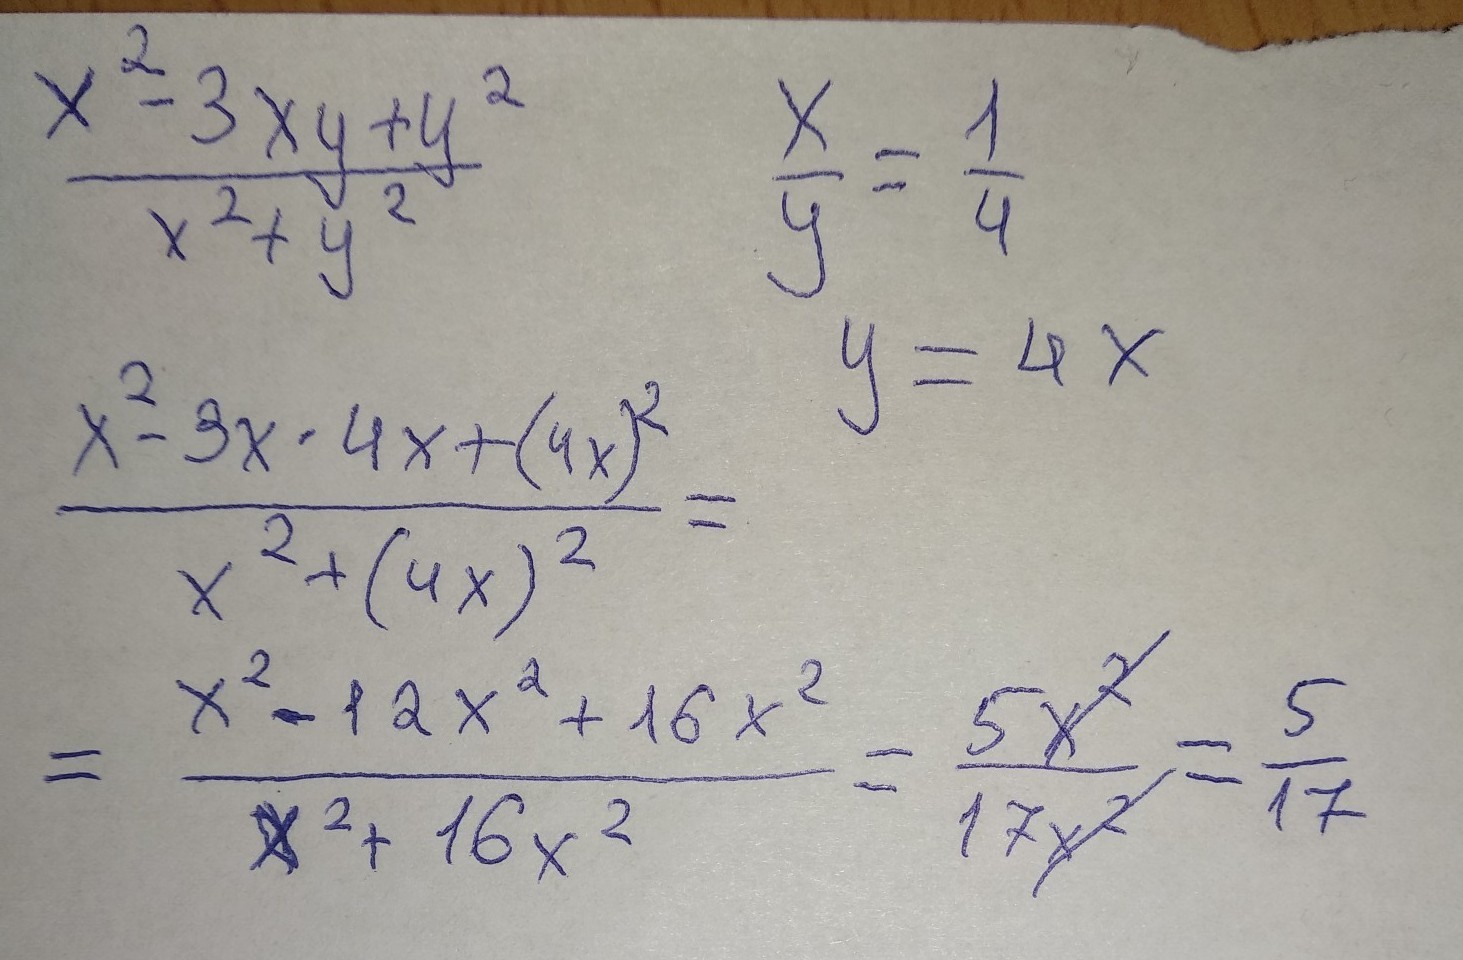 (x² - 3xy + y²) / (x² + y²)    x/y = 1/4
y = 4x
(x² - 3x · 4x + (4x)²) / (x² + (4x)²) =
= (x² - 12x² + 16x²) / (x² + 16x²) = 5x² / 17x² = 5/17